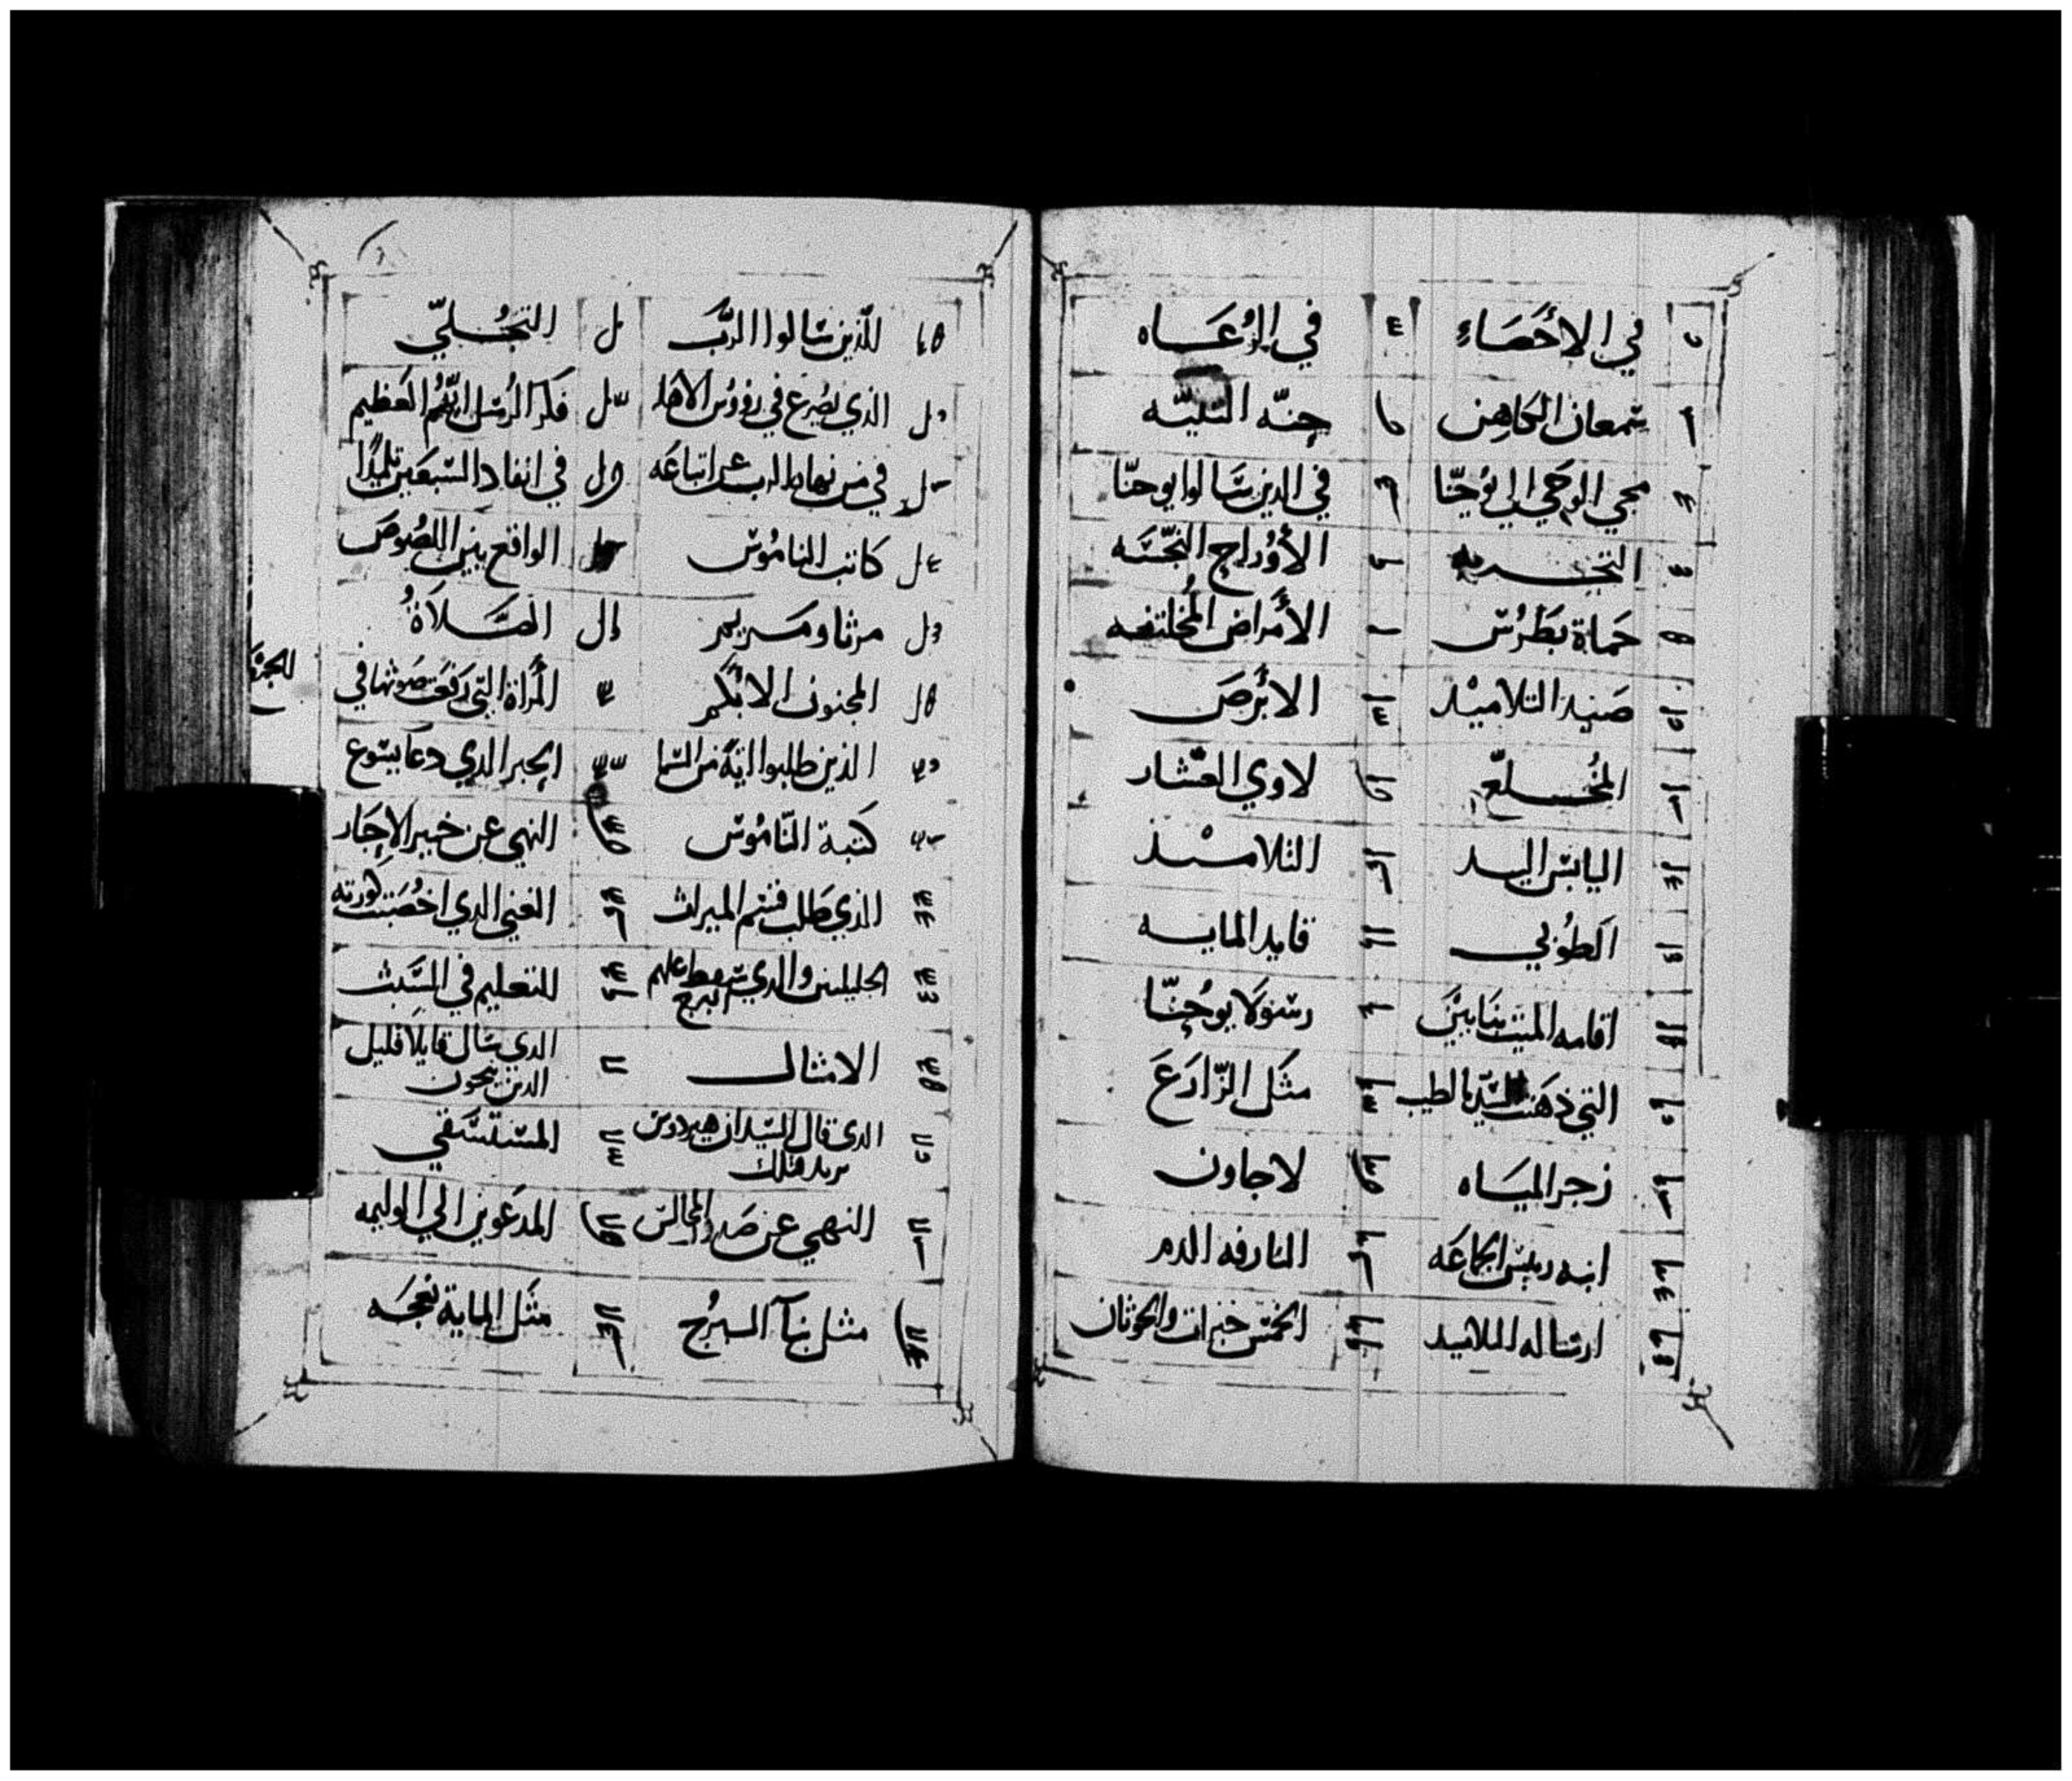 في الأحصاء في الرعاه
سمعان الكاهن حنّه النبيّه
مجي الوحي الي يوحنّا في الذين سالوا يوحنّا
التجربه الأوراح النجسه
حماة بطرس الأمراض المختلفه
صيد التلاميذ الابرص
المخلع لاوي العشار
اليابس اليد التلاميذ
الطوبي قايد المايه
اقامه الميت بنايين رسولا يوحنّا
التي دهنت السيد بالطيب مثل الزارع
زجر المياه لاجاون
ابنه رييس الجماعه النازفه الدم
ارساله التلاميد الخمس خبزات والحوتان
للذين سالوا الرب التجلّي
الذي يصرع في رووس الاهله فكر الرسل ايهم العظيم
في من نهاه الرب عن اتباعه في انفاد السبعين تلميذًا
كاتب الناموس الواقع بين اللصوص
مرثا ومريم الصلاة
المجنون الابكم المرأة التي رفعت صوتها في الجمع
الذين طلبوا اية من السما الحبر الدي دعا يسوع
كتبة الناموس النهي عن خمير الاحبار
الذي طلب قسم الميراث الغني الدي اخصبت كورته
الجليليين والدي سقط عليهم البرج التعليم في السبت
الامثال الدي سال قايلا قليل الدين ينجون
الدي قال للسيد ان هيرودس يريد قتلك المستسقي
النهي عن صدر المجالس المدعوين الي الوليمه
مثل بنآ البرج مثل الماية نعجه